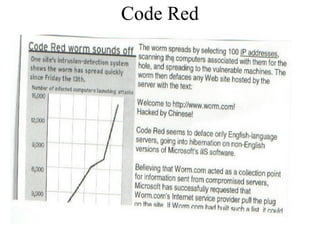 Code Red
Code Red worm sounds off
One site's intrusion-detection system
shows the worm has spread quickly
since Friday the 13th.
Number of infected computers launching attacks
15,000
12,000
9,000
6,000
3,000
The worm spreads by selecting 100 IP addresses,
scanning the computers associated with them for the
hole, and spreading to the vulnerable machines. The
worm then defaces any Web site hosted by the
server with the text:
Welcome to http://www.worm.com!
Hacked by Chinese!
Code Red seems to deface only English-language
servers, going into hibernation on non-English
versions of Microsoft's IIS software.
Believing that Worm.com acted as a collection point
for information sent from compromised servers,
Microsoft has successfully requested that
Worm.com's Internet service provider pull the plug
on the site. If Worm.com had built such a list, it could